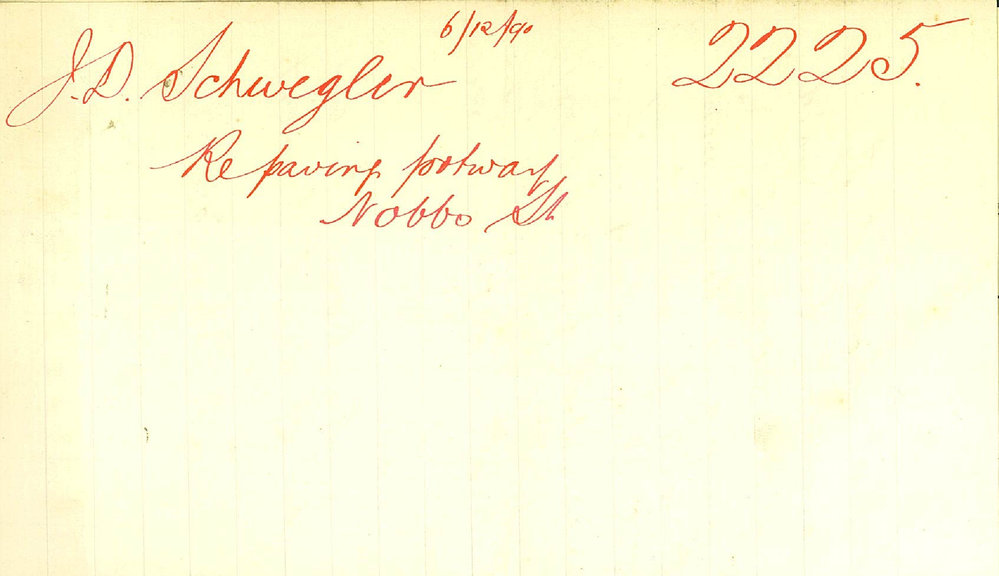 6/12/90
J.D. Schwegler 2225.
Re paving footway
Nobbs St